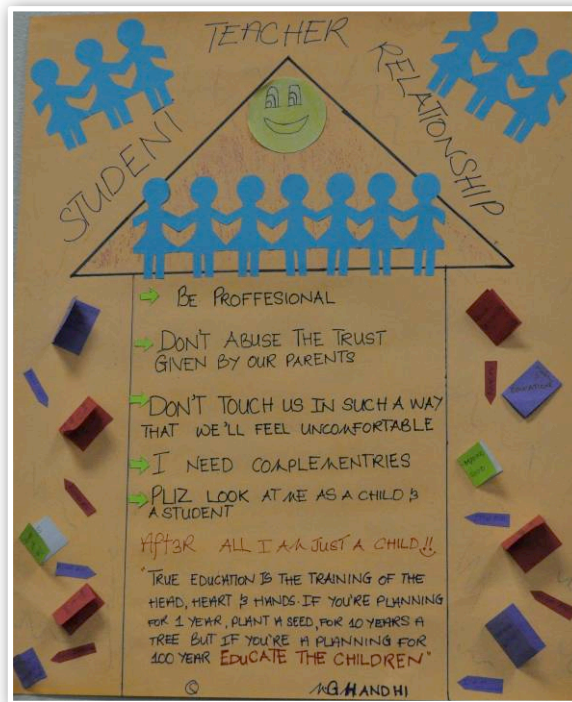 STUDENT
TEACHER
RELATIONSHIP
BE PROFFESIONAL
DON'T ABUSE THE TRUST
GIVEN BY OUR PARENTS
DON'T TOUCH US IN SUCH A WAY
THAT WE'LL FEEL UNCOMFORTABLE
I NEED COMPLEMENTRIES
PLIZ LOOK AT ME AS A CHILD &
A STUDENT
AFT3R ALL I AM JUST A CHILD!!
"TRUE EDUCATION IS THE TRAINING OF THE
HEAD, HEART & HANDS. IF YOU'RE PLANNING
FOR 1 YEAR, PLANT A SEED, FOR 10 YEARS A
TREE BUT IF YOU'RE A PLANNING FOR
100 YEAR EDUCATE THE CHILDREN"
EDUCATION